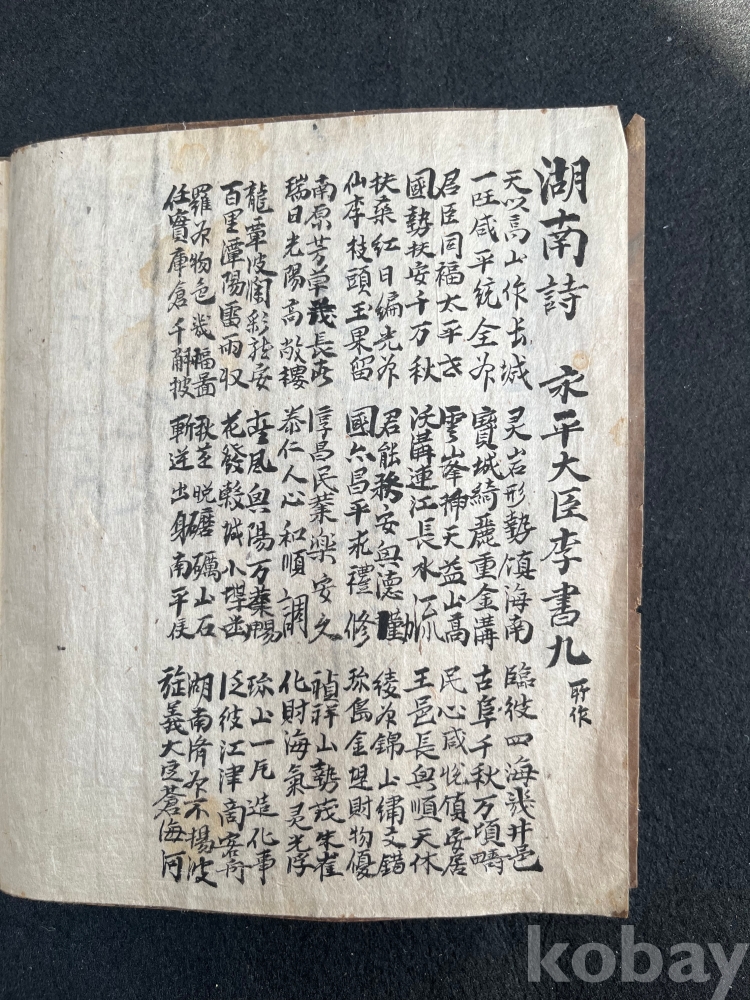 湖南詩 永平大臣李書九 所作
天以高山作长城 灵岩形勢鎮海南 臨彼四海幾井邑
一匡咸平統全州 寶城綺麗重金溝 古阜千秋万頃疇
君臣同福太平世 雲峯揷天益山高 民心咸悅安居
國勢扶安千万秋 沃溝連江長水流 王邑長興順天休
扶桑紅日編光州 君能務安興德勤 綾州錦山繡文錯
仙李枝頭玉果留 國亦昌平禮修 珎島金堤財物優
南原芳草茂長 淳昌民業樂安久 禎祥山勢茂朱雀
瑞日光陽高敞樓 泰仁人心和順調 化財海氣灵光浮
龍覃波瀾彩龍安 風興陽万葉暢 珎山一片造化事
百里潭陽雷雨収 花發穀城小 泛彼江津商客
羅州物色幾幅畵 秋至晩磨礪山石 湖南濟州不揚波
任實庫倉千斛披 斬送出身南平侯 旋義大定蒼海河
kobay